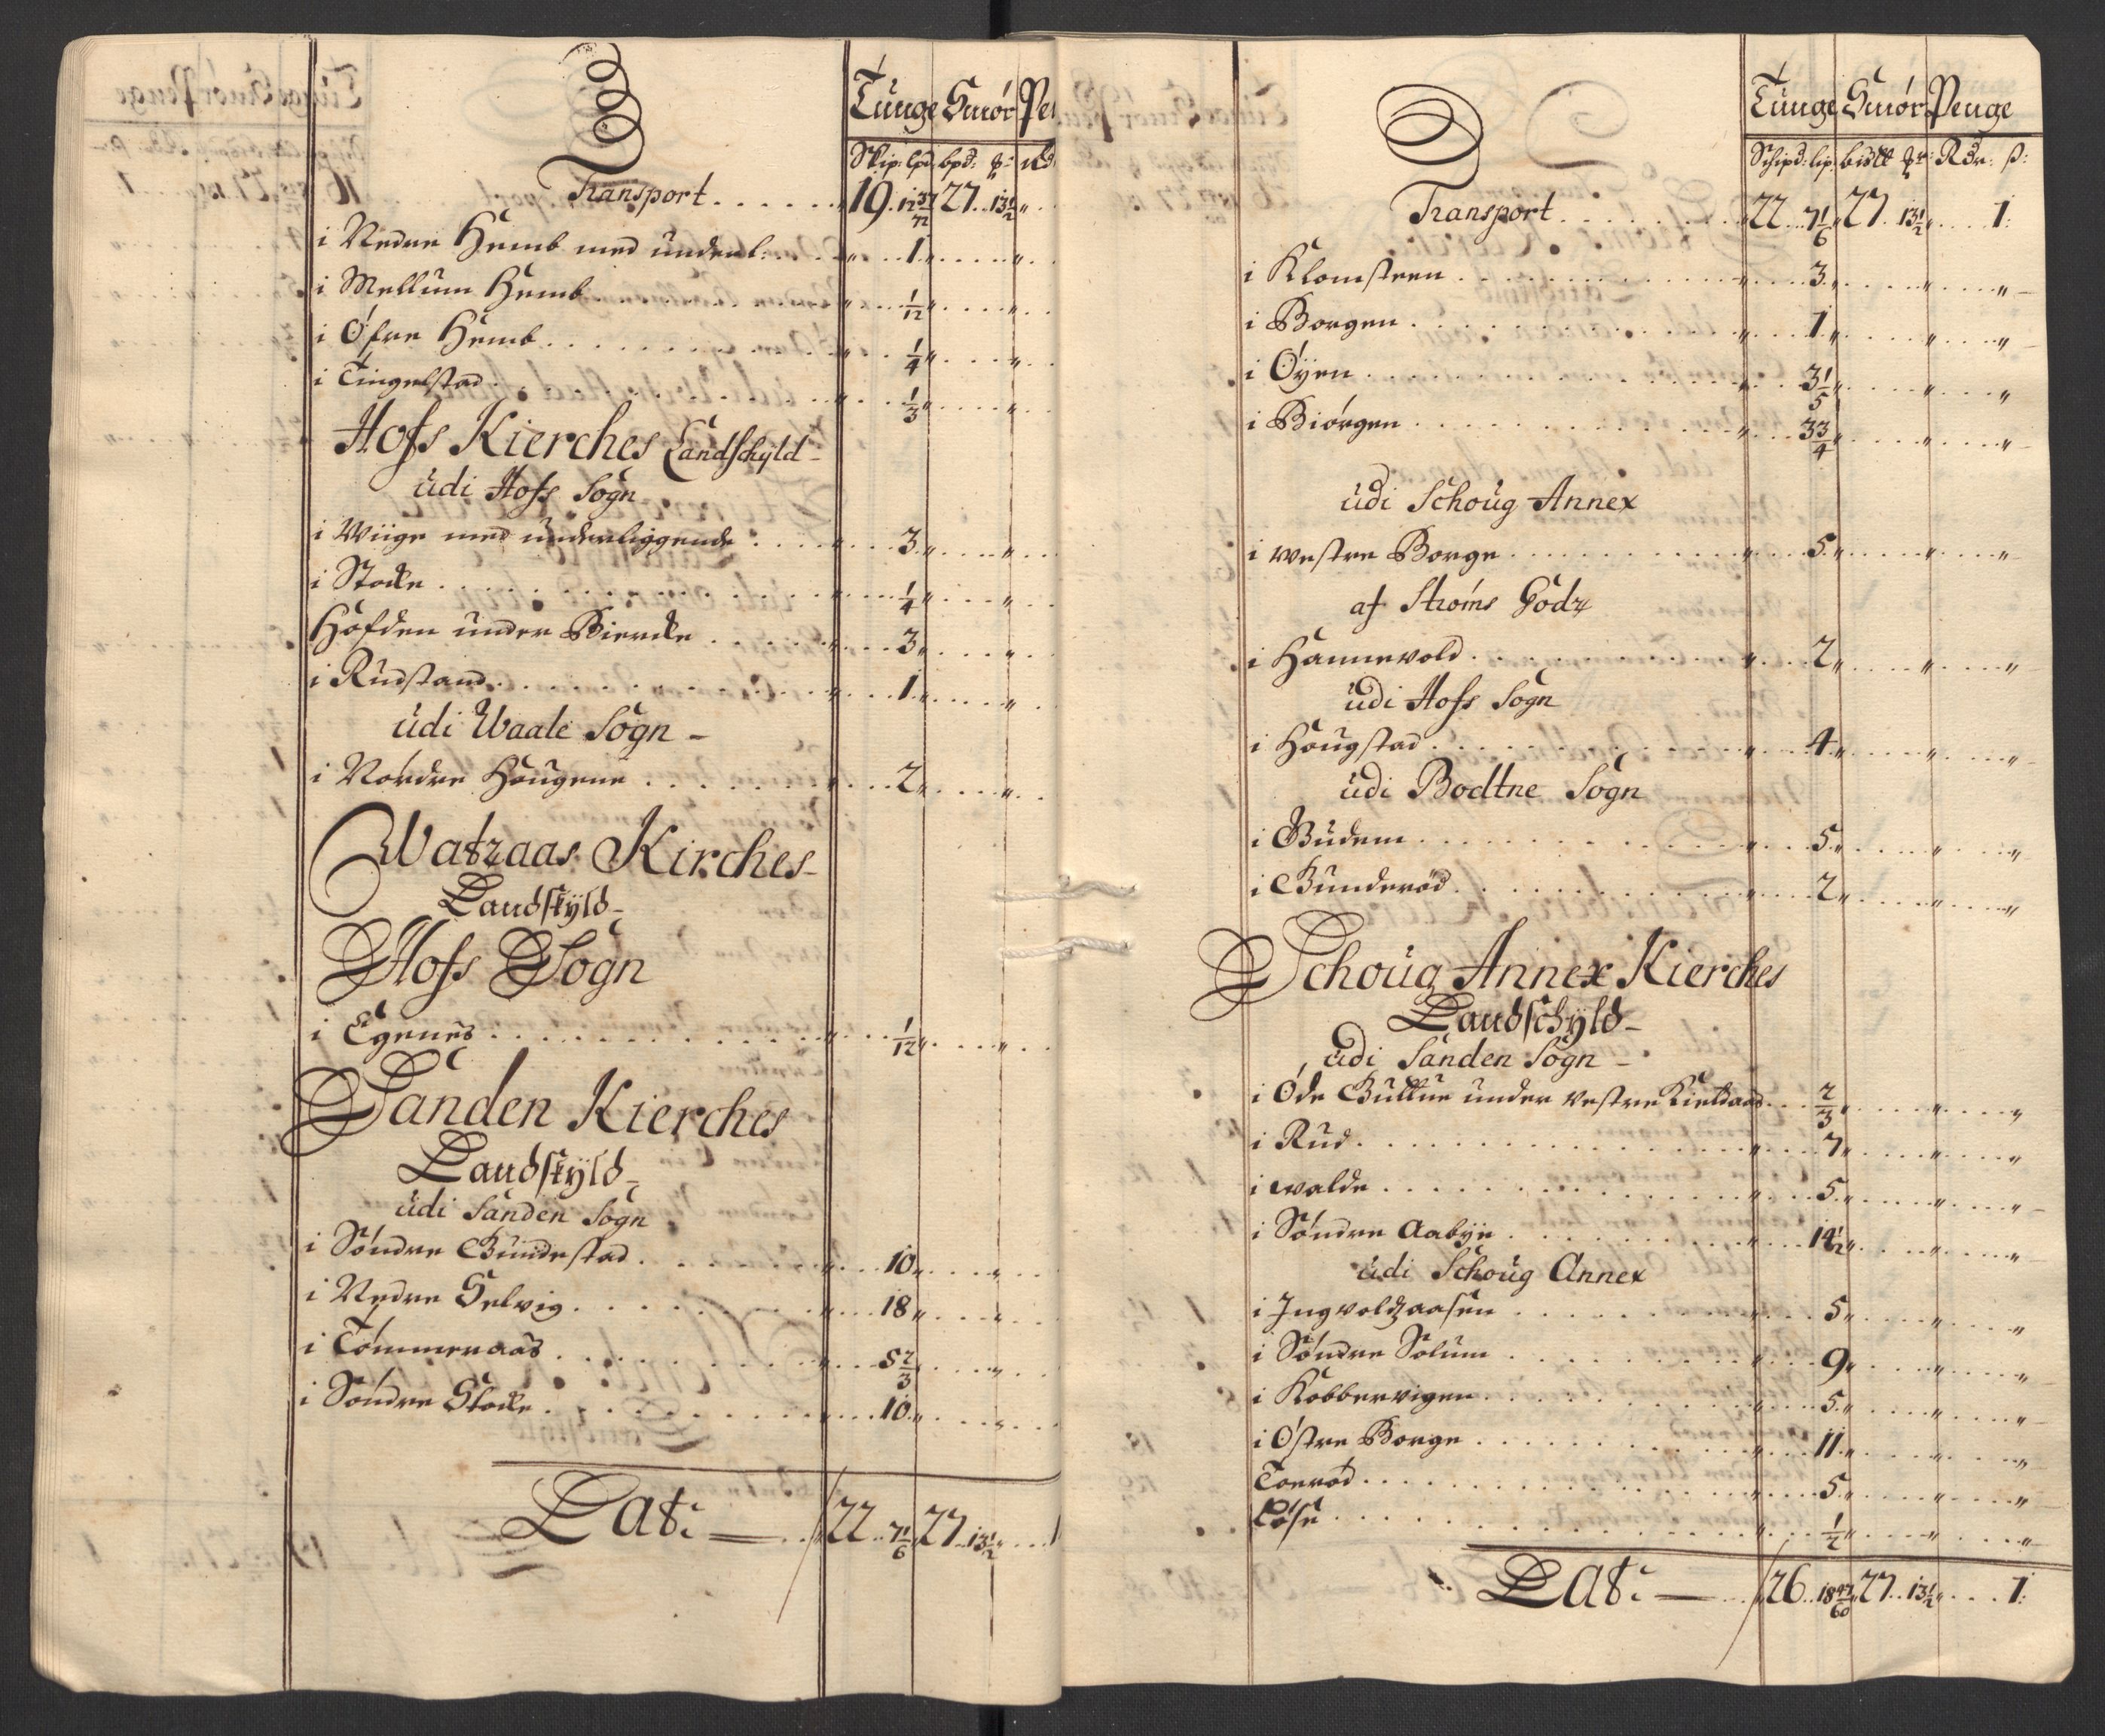 Tunge Smör Pe
Skip: lpd bpd: ℔: Rd
Transport . . . . . . 19. 12 37/72 27. 13 1/2 "
i Nedre Hemb med underl: . . . 1 "
i Mellum Hemb . . . 1/12 "
i Öfre Hemb . . . 1/4 "
i Tingelstad . . . 1/3 "
Hofs Kierches Landschyld
udi Hofs Sogn
i Wiige med underliggende . . . 3 "
i Stocke . . . 1/4 "
Höfden under Biercke . . . 3 "
i Rudstand . . . 1 "
udi Waale Sogn
i Nordre Hougene . . . 2 "
Watzaas Kirches
Landskyld
Hofs Sogn
i Egenes . . . 1/12 "
Sanden Kierches
Landskyld
udi Sanden Sogn
i Söndre Bundestad . . . 10 "
i Nedre Selvig . . . 18 "
i Tömmeraas . . . 5 2/3 "
i Söndre Stocke . . . 10 "
Lat: 22 . . 7 1/6 27 . . 13 1/2 . . . 1
Tunge Smör Penge
Schipd: lip: Rdr: ß:
Transport . . . 22 . . 7 1/6 27 . 13 1/2 . . . 1:
i Klomsteen . . . 3 "
i Borgen . . . 1 "
i Öyen . . . 3 1/5 "
i Biörgen . . . 3 3/4 "
udi Schoug Annex
i vestre Borge . . . 5 "
af Ströms Godz
i Hannevold . . . 2 "
udi Hofs Sogn
i Hougstad . . . 4 "
udi Bodtne Sogn
i Budem . . . 5 "
i Bunderöd . . . 2 "
Schoug Annex Kierches
Landschyld
udi Sanden Sogn
i Öde Bullue under Vestre Kieldaas . . . 2/3 "
i Rud . . . 7 "
i walde . . . 5 "
i Söndre Aabye . . . 14 1/2 "
udi Schoug Annex
i Ingvoldzaasen . . . 5 "
i Söndre Solum . . . 9 "
i Kobbervigen . . . 5 "
i Östre Borge . . . 11 "
Toeröd . . . 5 "
Löse . . . 1/2 "
Lat: 26 . . 18 47/60 27 . . 13 1/2 . . . 1: